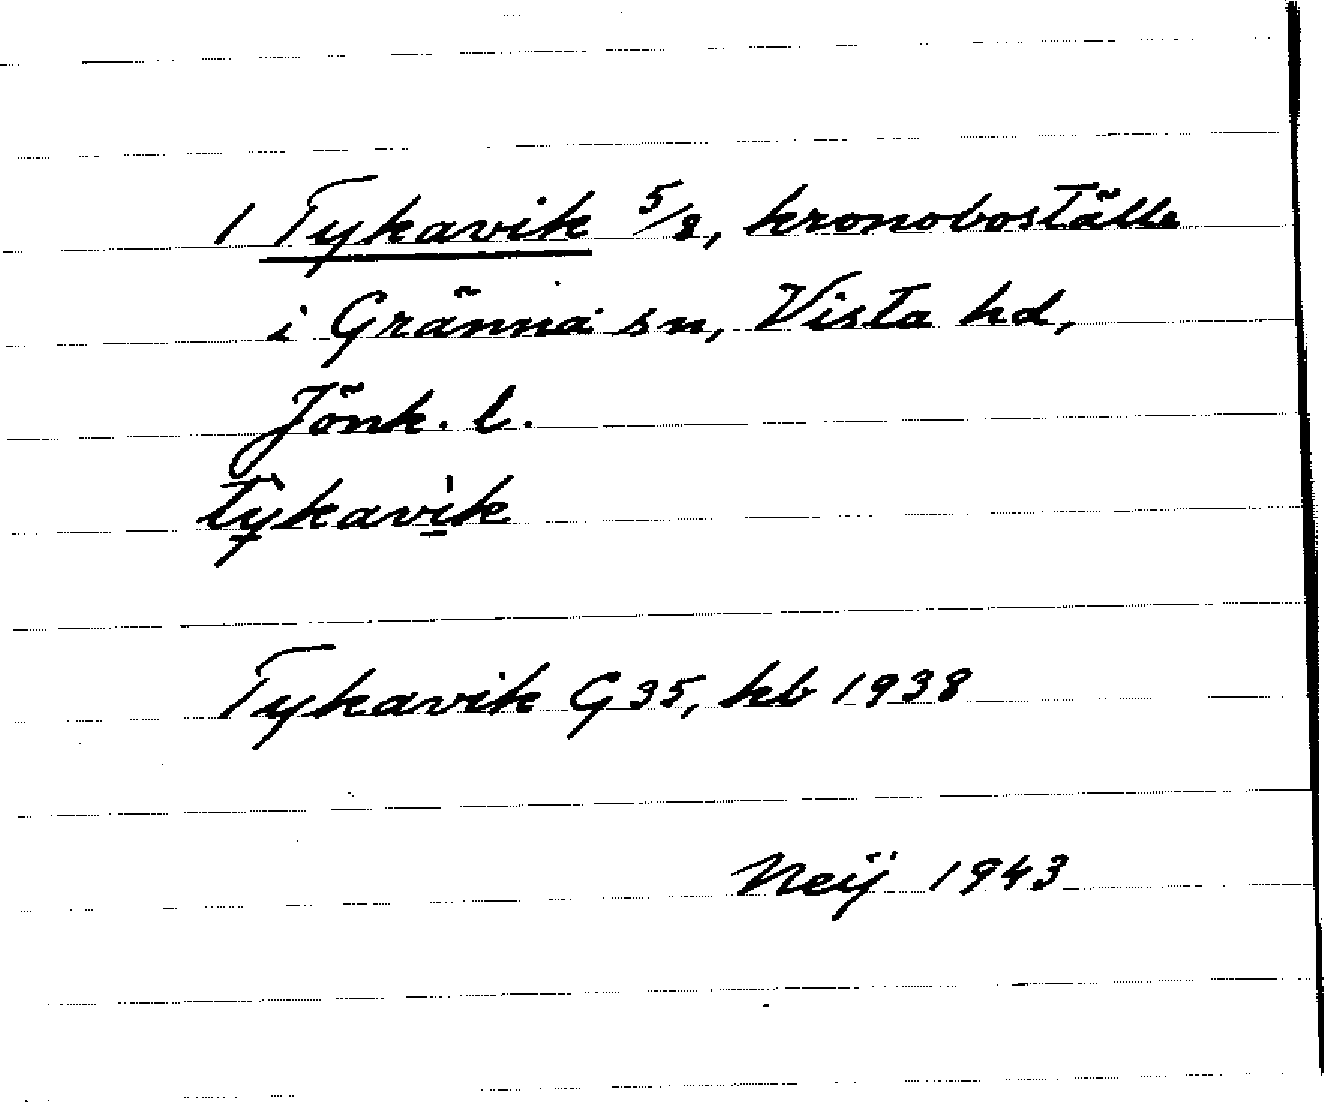 1 Tykavik 5/8, kronoboställe
i Gränna sn, Vista hd,
Jönk. l.
tykavik
Tykavik G35, kb 1938
Neij 1943